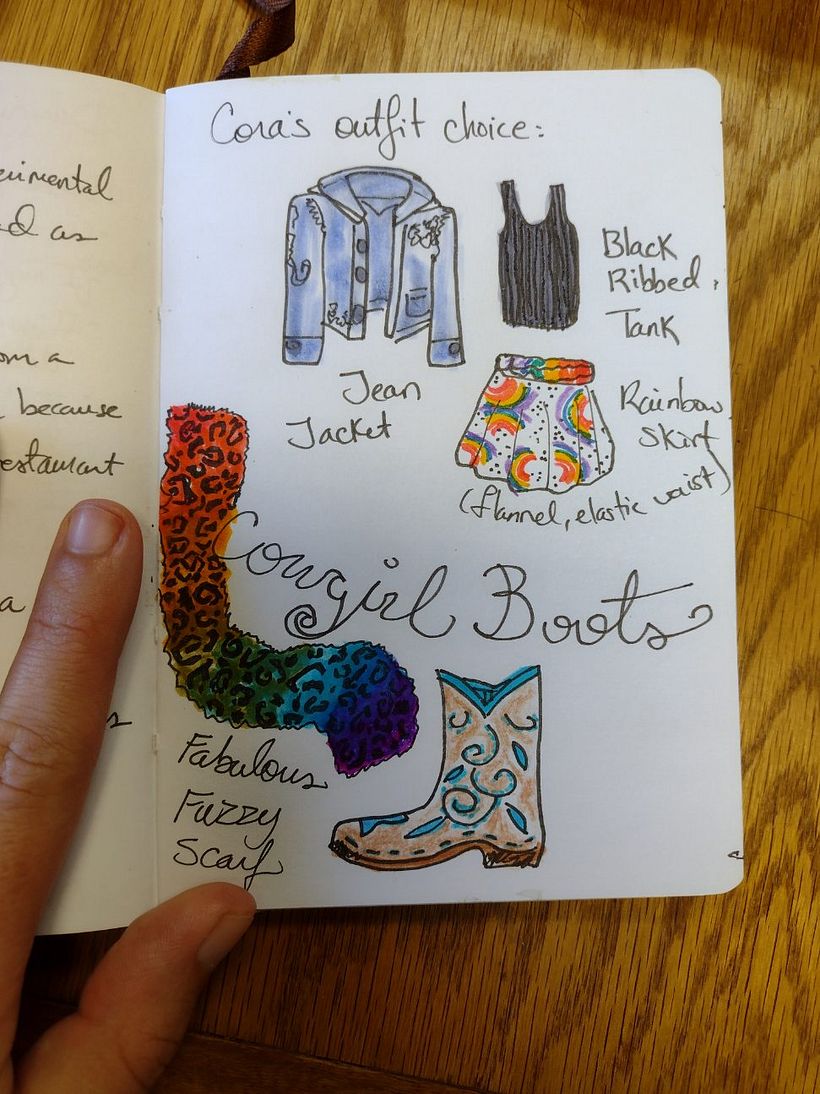 erimental
ed as
om a
because
restaurant
a
Cora's outfit choice:
Black
Ribbed
Tank
Jean
Jacket
Rainbow
Skirt
(flannel, elastic waist)
Cowgirl Boots
Fabulous
Fuzzy
Scarf